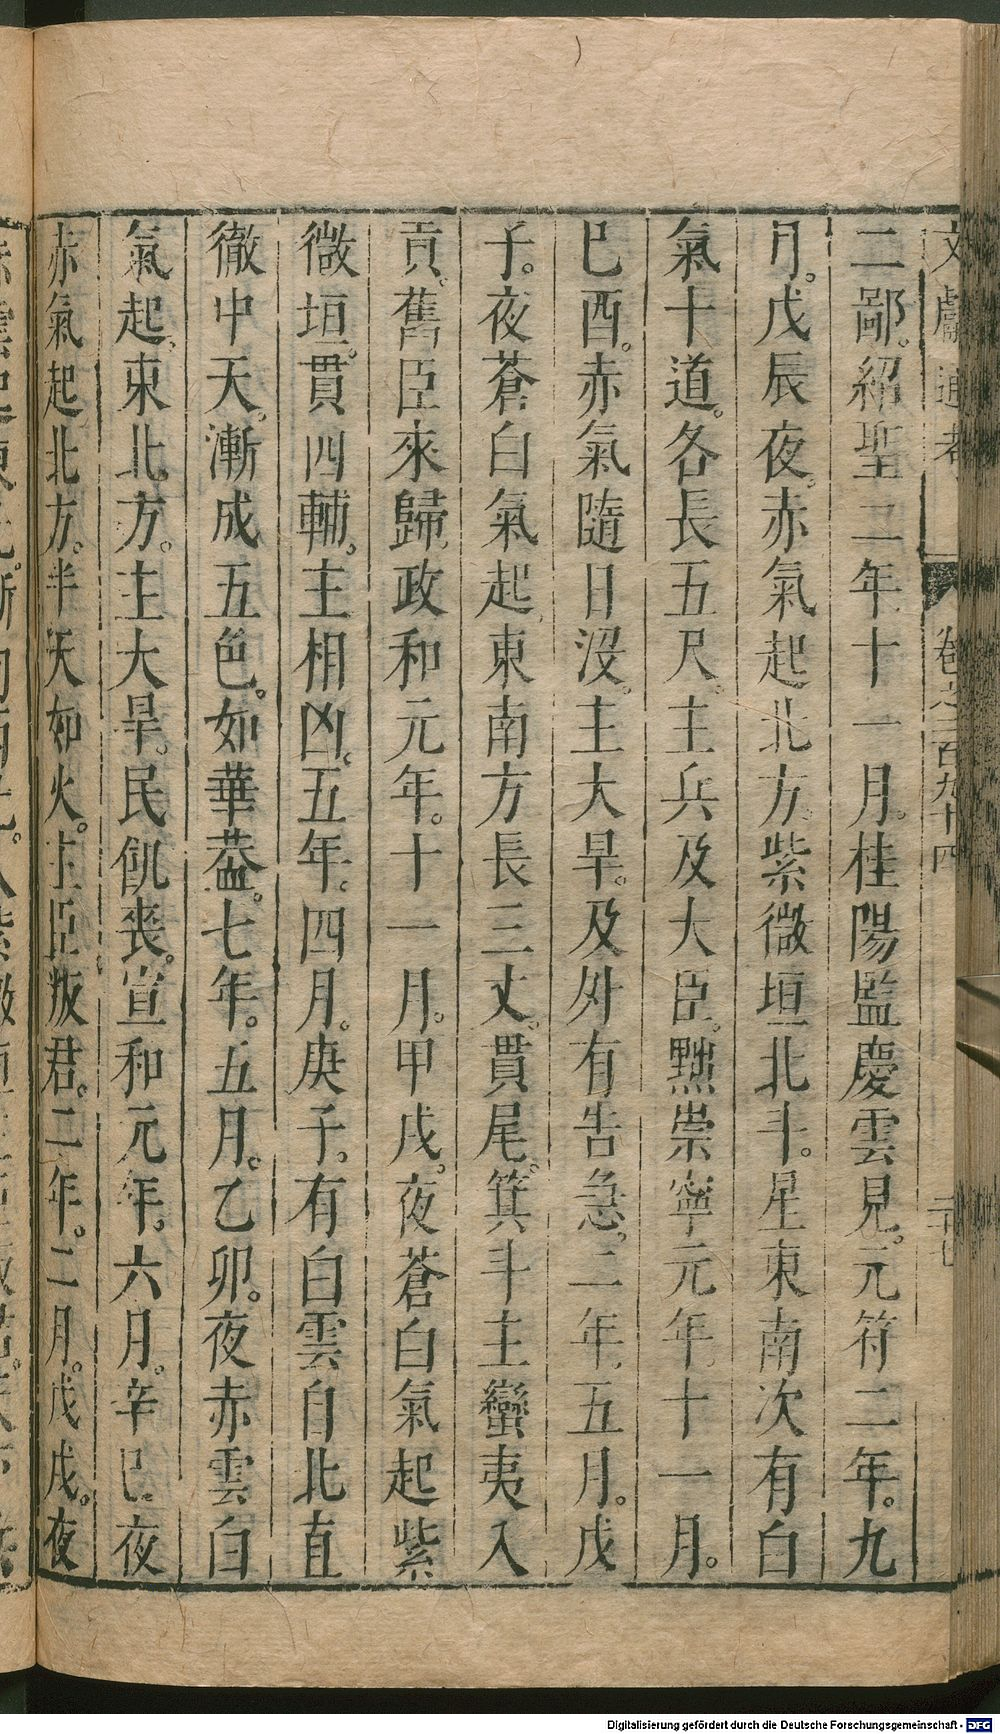 文獻通考 卷之二百九十四
二鄙。紹聖二年十一月。桂陽監慶雲見。元符二年。九
月。戊辰夜。赤氣起北方。紫微垣北斗。星東南次有白
氣十道。各長五尺。主兵及大臣。黜崇寧元年。十一月。
巳酉。赤氣隨日沒。主大旱。及外有告急。二年。五月。戊
子。夜蒼白氣起東南方長三丈。貫尾。箕斗主蠻夷入
貢。舊臣來歸。政和元年。十一月。甲戌。夜蒼白氣起紫
微垣。貫四輔。主相凶。五年。四月。庚子。有白雲自北直
徹中天。漸成五色。如華葢。七年。五月。乙卯。夜赤雲白
氣起。東北方。主大旱。民飢喪。宣和元年。六月。辛巳夜
赤氣起北方。半天如火。主臣叛君。二年。二月。戊戌。夜
Digitalisierung gefördert durch die Deutsche Forschungsgemeinschaft - DFG